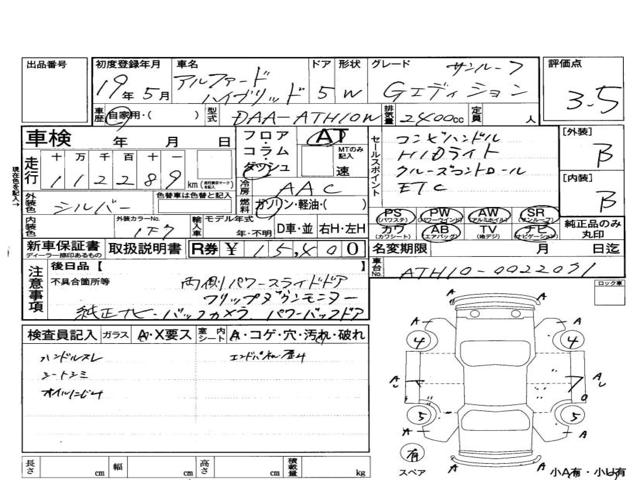 出品番号
初度登録年月 車名 ドア 形状 グレード 評価点
19年5月 アルファード ハイブリッド 5 W サンルーフ Gエディション 3.5
車歴 自家用・( ) 型式 DAA-ATH10W 排気量 2400cc 定員 人
車検 年 月 日
フロア コラム ダッシュ AT MTのみ記入 速
走行 十 万 千 百 十
112289 km
冷房 AAC
燃料 ガソリン・軽油・( )
セールスポイント
コンビハンドル
HIDライト
クルーズコントロール
ETC
[外装] B
[内装] B
外装色 シルバー 色替車は色替と記入
内装色 外装カラーNo. 1F7
輸入車 モデル年式 年・不明 D車・並 右H・左H
PS (パワステ) PW (パワーウインド) AW (アルミホイル) SR (サンルーフ)
カワ (カワシート) AB (エアバッグ) TV (地デジ) ナビ (ナビゲーション)
純正品のみ丸印
新車保証書 ディーラー捺印あるもの 取扱説明書 R券 ¥15,400
名変期限 月 日迄
車台No. ATH10-0022031
ロック車
注意事項
後日品【 】
不具合箇所等
両側パワースライドドア
フリップダウンモニター
純正ナビ・バックカメラ・パワーバックドア
検査員記入 ガラス A・X要ス 室内シート A・コゲ・穴・汚れ・破れ
ハンドルスレ
シートシミ
オイルにじみ
長さ cm 幅 cm 高さ cm 積載量 kg
現在色を記入→
4 4
A A
5 5
A A
有
スペア
小A有・小U有